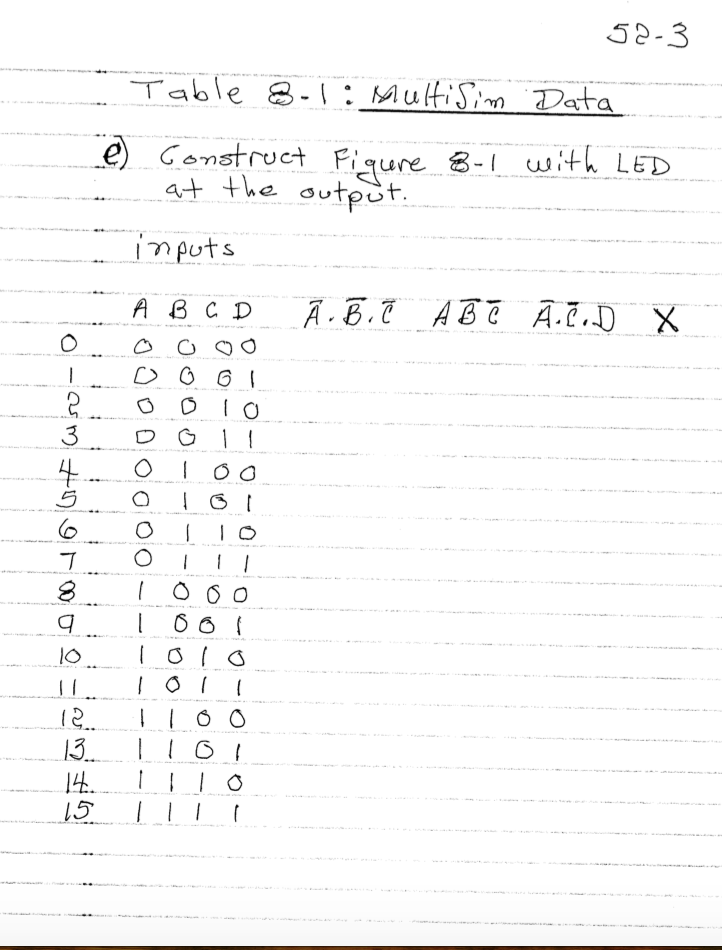 52-3
Table 8-1: MultiSim Data
e) Construct Figure 8-1 with LED
at the output.
inputs
A B C D Ā.B̄.C̄ AB̄C̄ Ā.C̄.D X
0 0 0 0 0
1 0 0 0 1
2 0 0 1 0
3 0 0 1 1
4 0 1 0 0
5 0 1 0 1
6 0 1 1 0
7 0 1 1 1
8 1 0 0 0
9 1 0 0 1
10 1 0 1 0
11 1 0 1 1
12 1 1 0 0
13 1 1 0 1
14 1 1 1 0
15 1 1 1 1